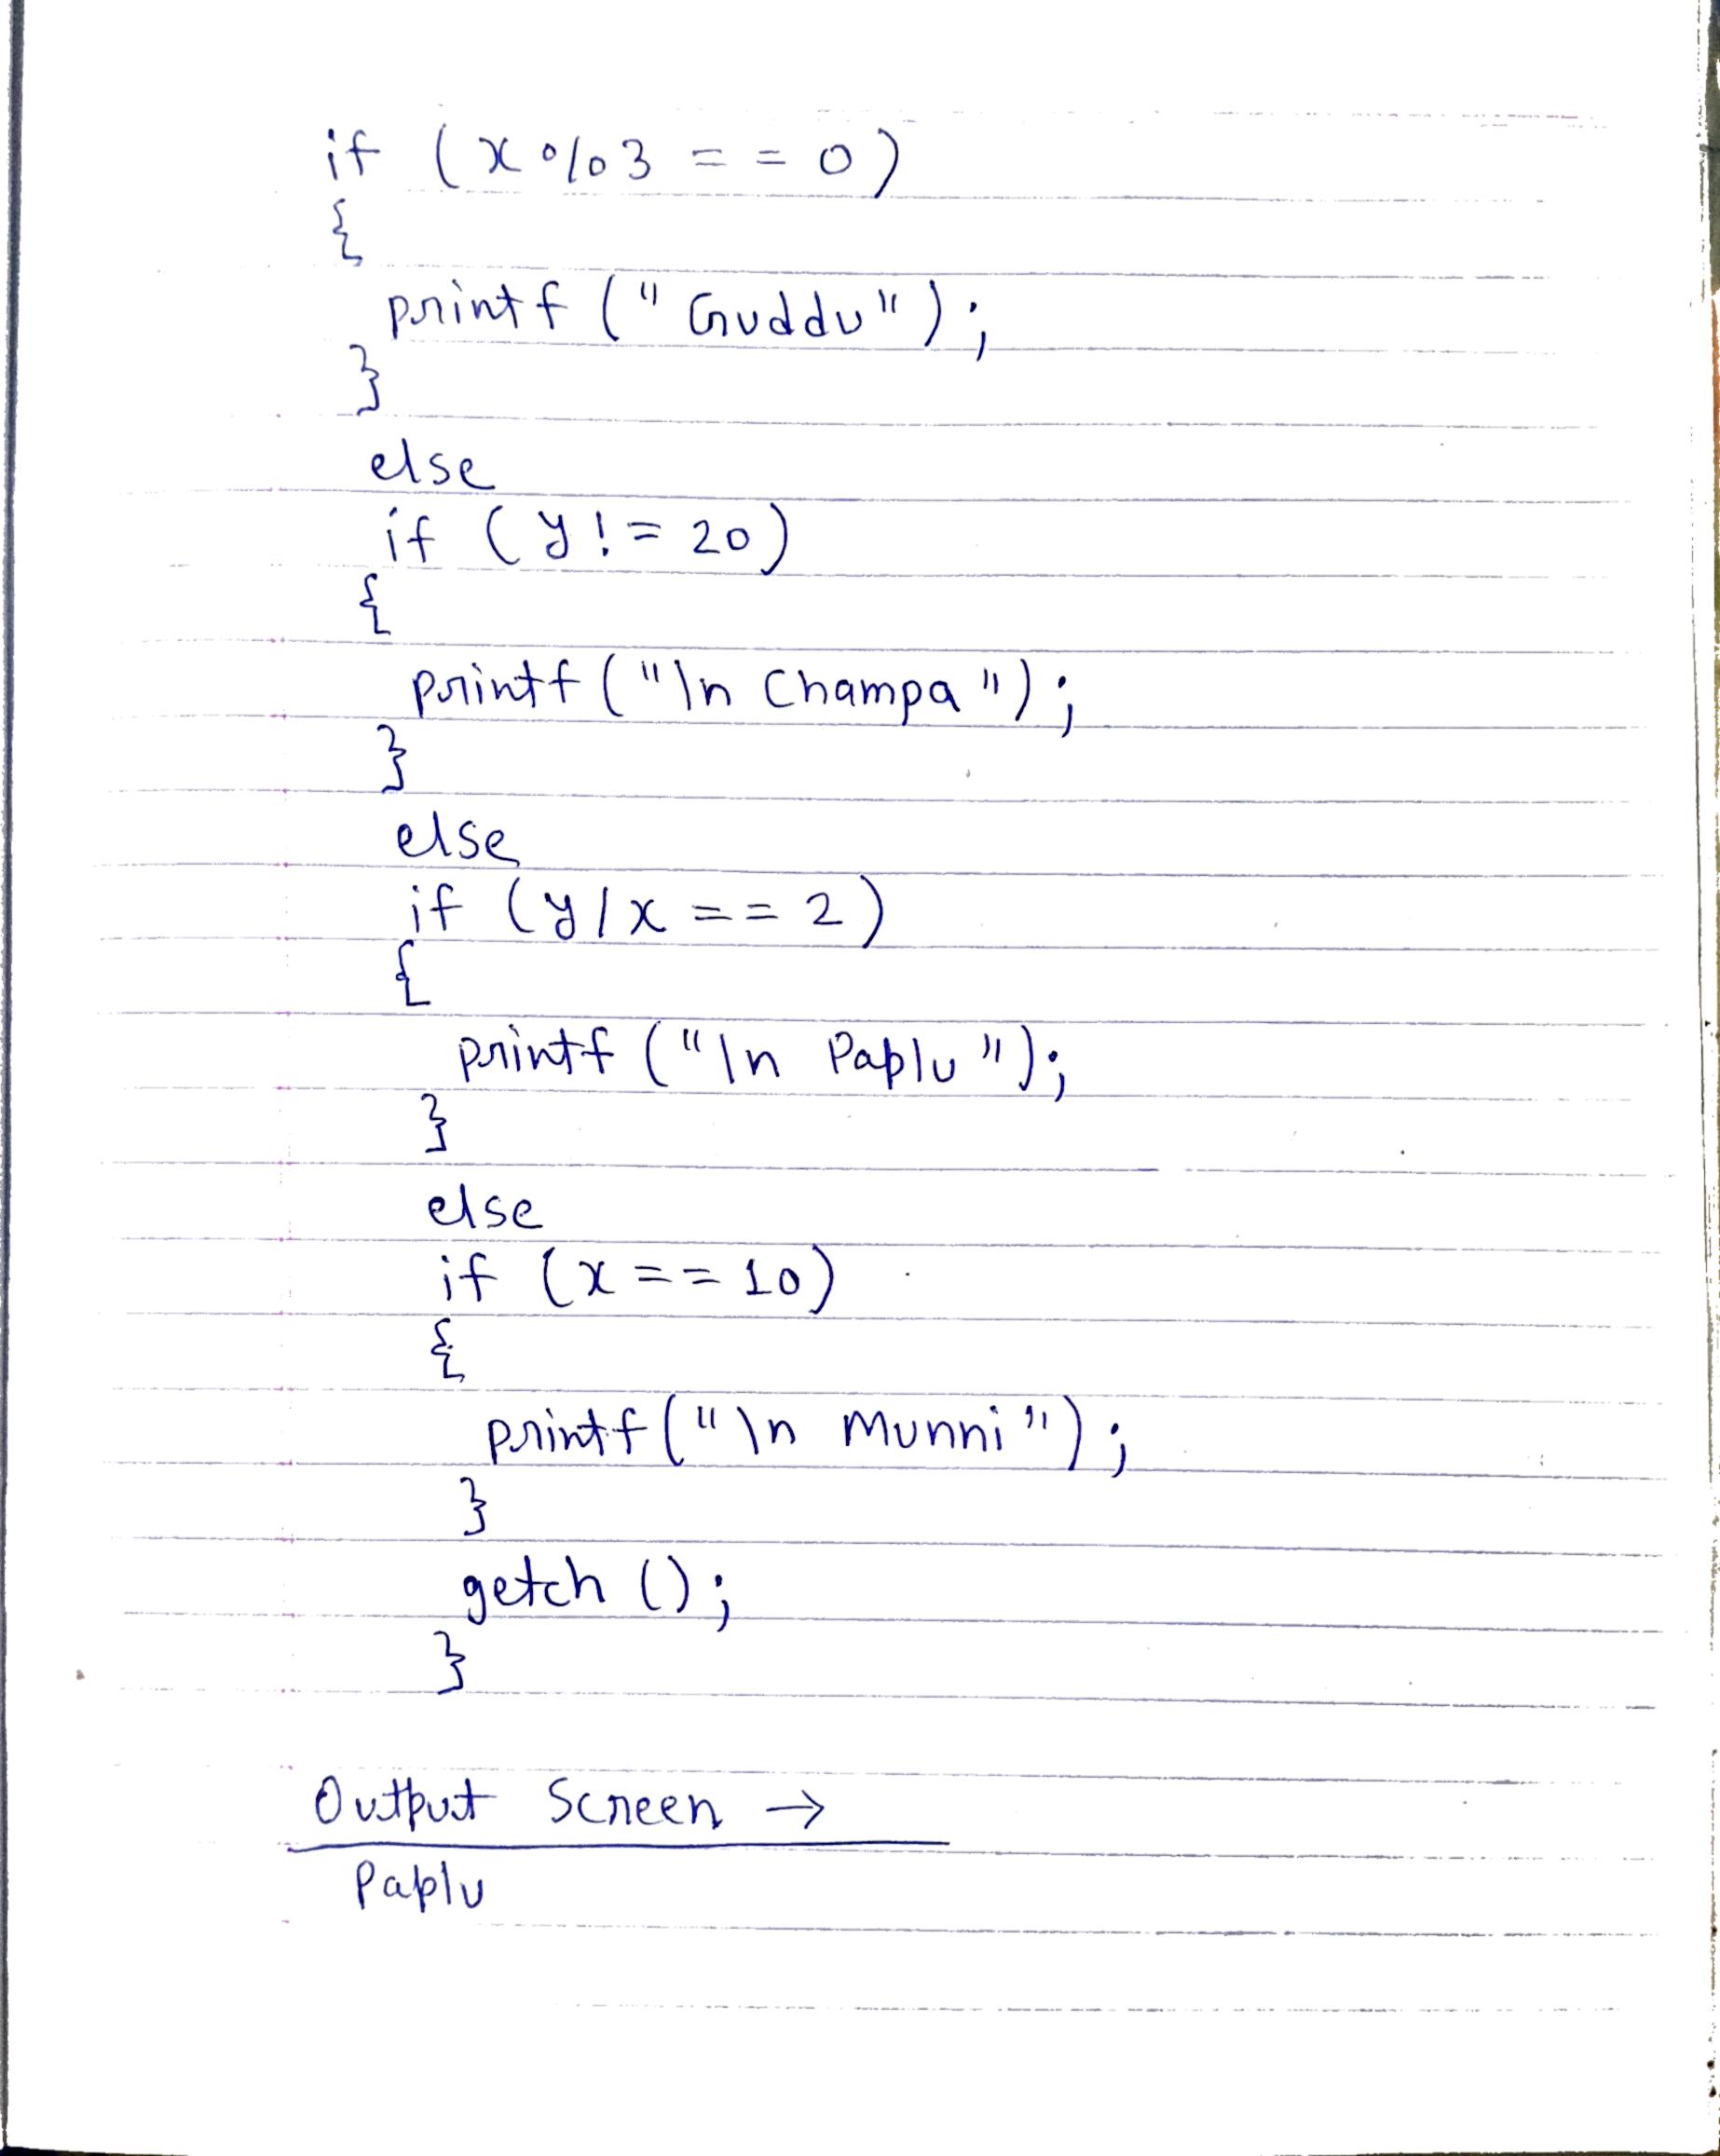 if (x%3 == 0)
{
printf ("Guddu");
}
else
if (y!= 20)
{
printf ("\n Champa");
}
else
if (y/x == 2)
{
printf ("\n Paplu");
}
else
if (x == 10)
{
printf ("\n Munni");
}
getch ();
}
Output Screen →
Paplu